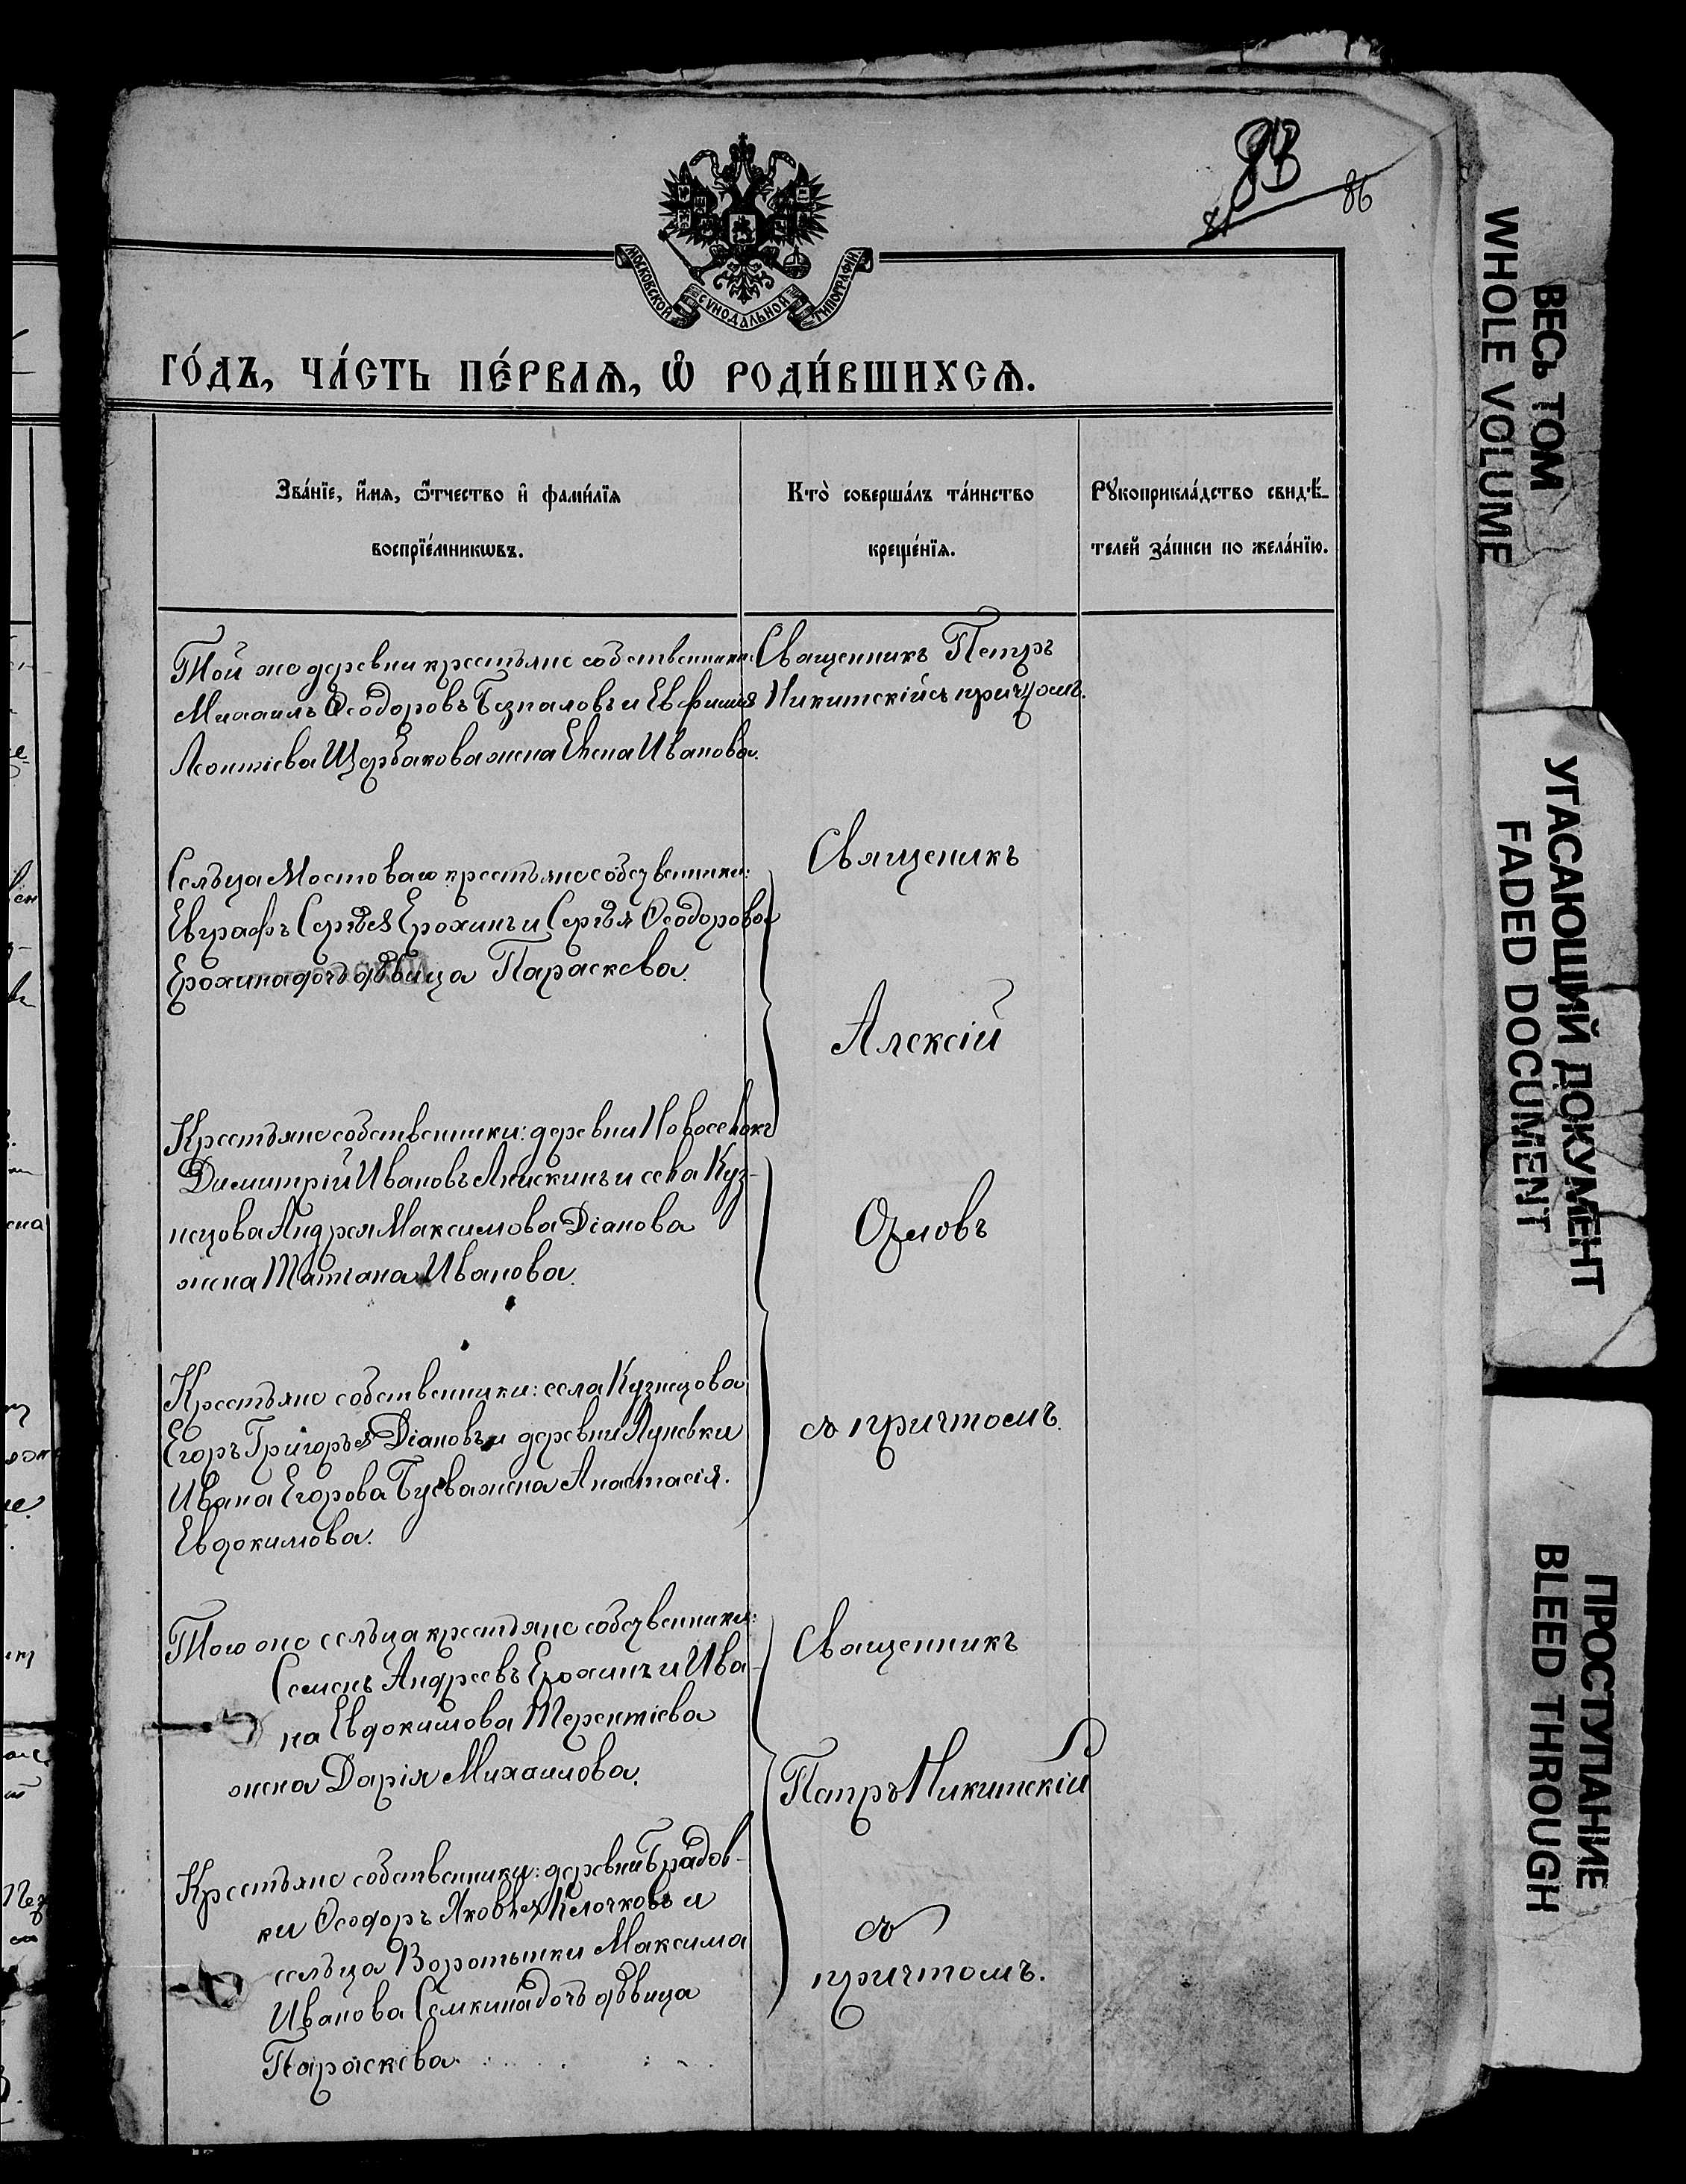 86
МОСКОВСКОЙ СѴНОДАЛЬНОЙ ТИПОГРАФІИ
ГО́ДЪ, ЧА́СТЬ ПЕ́РВАѦ, Ѡ҆ РОДИ́ВШИХСѦ.
Зва́нїе, и҆́мѧ, ѻ҆́тчество и҆ фами́лїѧ
воспрїе́мникѡвъ.
Кто̀ соверша́лъ та́инство
креще́нїѧ.
Рꙋкоприкла́дство свидѣ́-
телей за́писи по жела́нїю.
Той же деревни крестьяне собственники:
Михаилъ Ѳеодоровъ Безпаловъ и Евфимія
Леонтіева Щербакова жена Елена Иванова.
Священникъ Петръ
Никитскій съ причтомъ.
Сельца Мостоваго крестьяне собственники:
Евграфъ Сергѣев Ерохинъ и Сергѣя Ѳеодорова
Ерохина дочь дѣвица Параскева.
Крестьяне собственники: деревни Новоселокъ
Димитрій Ивановъ и села Куз-
нецова Андрея Максимова Діанова
жена Татіана Иванова.
Крестьяне собственники: села Кузнецова
Егоръ Григорьев Діановъ и деревни Луневки
Ивана Егорова жена Анастасія
Евдокимова.
Священикъ
Алексій
Орловъ
съ причтомъ.
Того же сельца крестьяне собственники:
Семенъ Андреевъ Ерохинъ и Ива-
на Евдокимова Терентіева
жена Дарія Михаилова.
Крестьяне собственники: деревни Брадов-
ки Ѳеодоръ Яковлев Клочковъ и
сельца Воротынки Максима
Иванова Семкина дочь дѣвица
Параскева
Священникъ
Петръ Никитскій
съ
причтомъ.
ВЕСЬ ТОМ
WHOLE VOLUME
УГАСАЮЩИЙ ДОКУМЕНТ
FADED DOCUMENT
ПРОСТУПАНИЕ
BLEED THROUGH